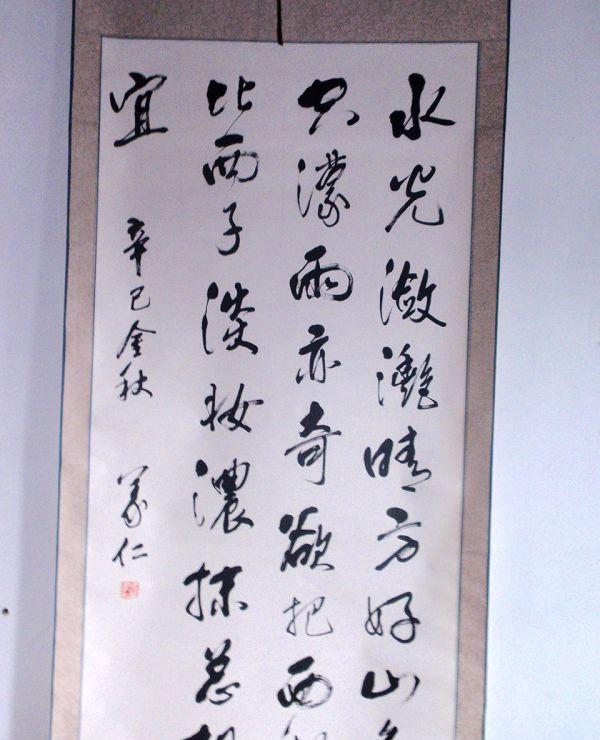 水光瀲灧晴方好山
空濛雨亦奇欲把西
比西子淡妆濃抹总
宜
辛巳金秋